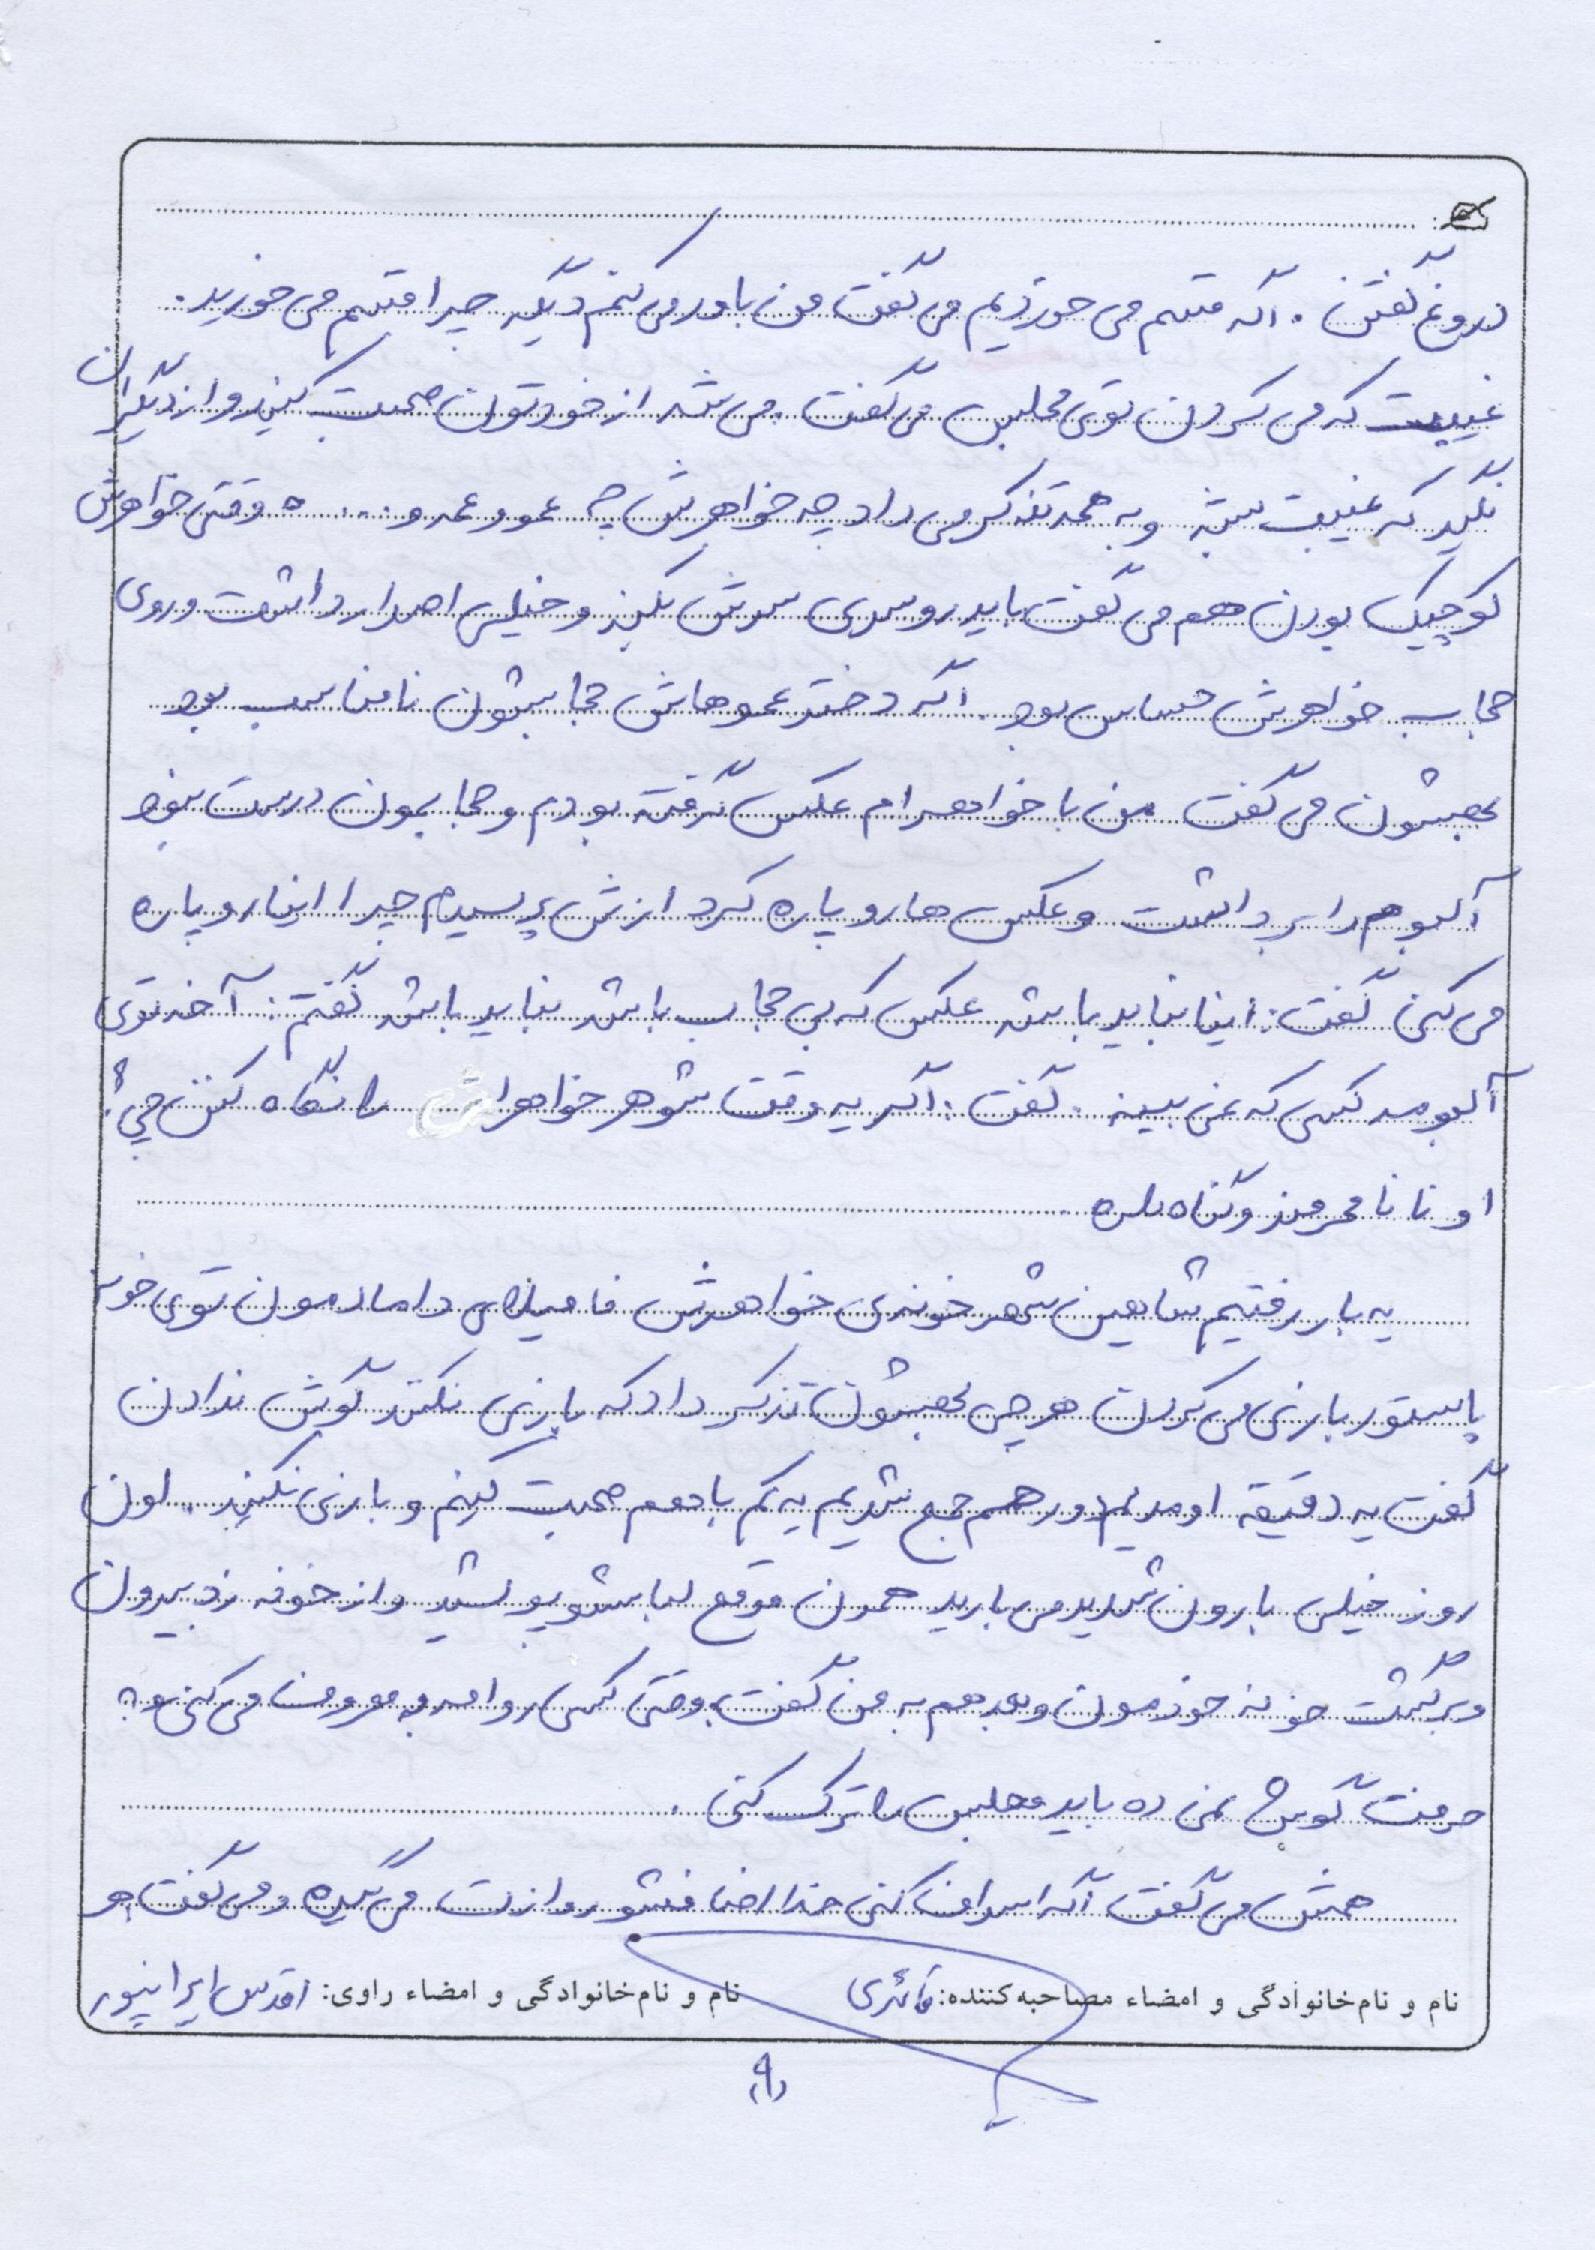 دروغ گفتن. اگه قسم می خوردیم می گفت من باور می کنم دیگه چرا قسم می خورید.
غیبت که می کردن توی مجلس می گفت می شه از خودتون صحبت کنید و از دیگران
نگید که غیبت بشه و به همه تذکر می داد چه خواهرش چه عمو و عمه و... ه وقتی خواهرش
کوچیک بودن هم می گفت باید روسری سرش بکنه و خیلی اصرار داشت و روی
حجاب خواهرش حساس بود. اگه دختر عموهاش حجابشون نامناسب بود
بهشون می گفت من با خواهرام عکس گرفته بودم و حجابمون درست نبود
آلبوم را برداشت و عکس ها رو پاره کرد ازش پرسیدم چرا اینا رو پاره
می کنی گفت: اینا نباید باشه عکس که بی حجاب باشه نباید باشه گفتم: آخه توی
آلبومه کسی که نمی بینه. گفت: اگر یه وقت شوهر خواهراش نگاه کنن چی؟!
اونا نامحرمند و گناه داره.
یه بار رفتیم شاهین شهر خونه ی خواهرش فامیلای دامادمون توی خونه
پاستور بازی می کردن هر چی بهشون تذکر داد که بازی نکنند گوش ندادن
گفت یه دقیقه اومدیم دور هم جمع شدیم یه کم با هم صحبت کنیم و بازی نکنید. اون
روز خیلی بارون شدید می بارید همون موقع لباسشو پوشید و از خونه زد بیرون
و برگشت خونه خودمون و بعد هم به من گفت وقتی کسی رو امر به معروف می کنی و به
حرفت گوش نمی ده باید مجلس را ترک کنی.
همش می گفت اگه اسراف کنی خدا اضافشو ازت می گیره و می گفت هر
نام و نام‌خانوادگی و امضاء مصاحبه‌کننده: قائدی نام و نام‌خانوادگی و امضاء راوی: اقدس ایرانپور
(۹)